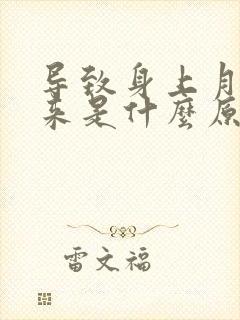 导致身上月
来是什麼原
雷文福